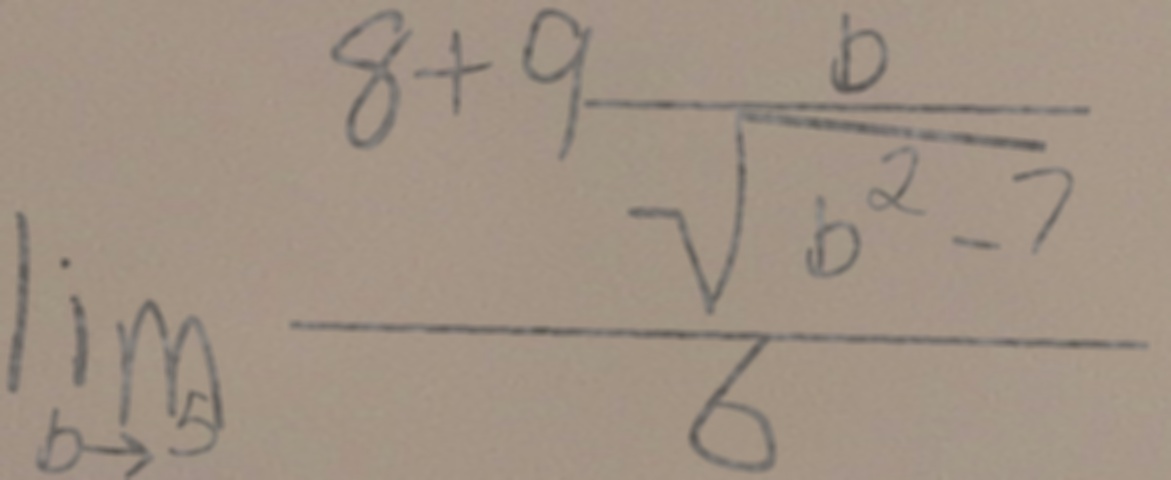 \lim_{b \to 5} \frac{8+9\frac{b}{\sqrt{b^2-7}}}{6}